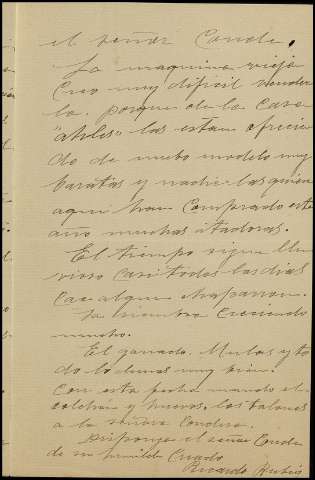 el señor Conde.
La maquina vieja
creo muy dificil vender
la, porque de la casa
"atilso" las estan ofrecien
do de nuebo modelo muy
baratas y nadie las quiere
aqui han comprado este
año muchas atadoras.
El tiempo sigue llu
vioso casi todos los dias
cae algun chaparron.
La siembra creciendo
mucho.
El ganado. Mulas y to
do lo demas muy bien.
Con esta fecha mando el
colchon y huevos, los talones
a la señora Condesa.
Disponga el señor Conde
de su humilde Criado
Ricardo Rubio